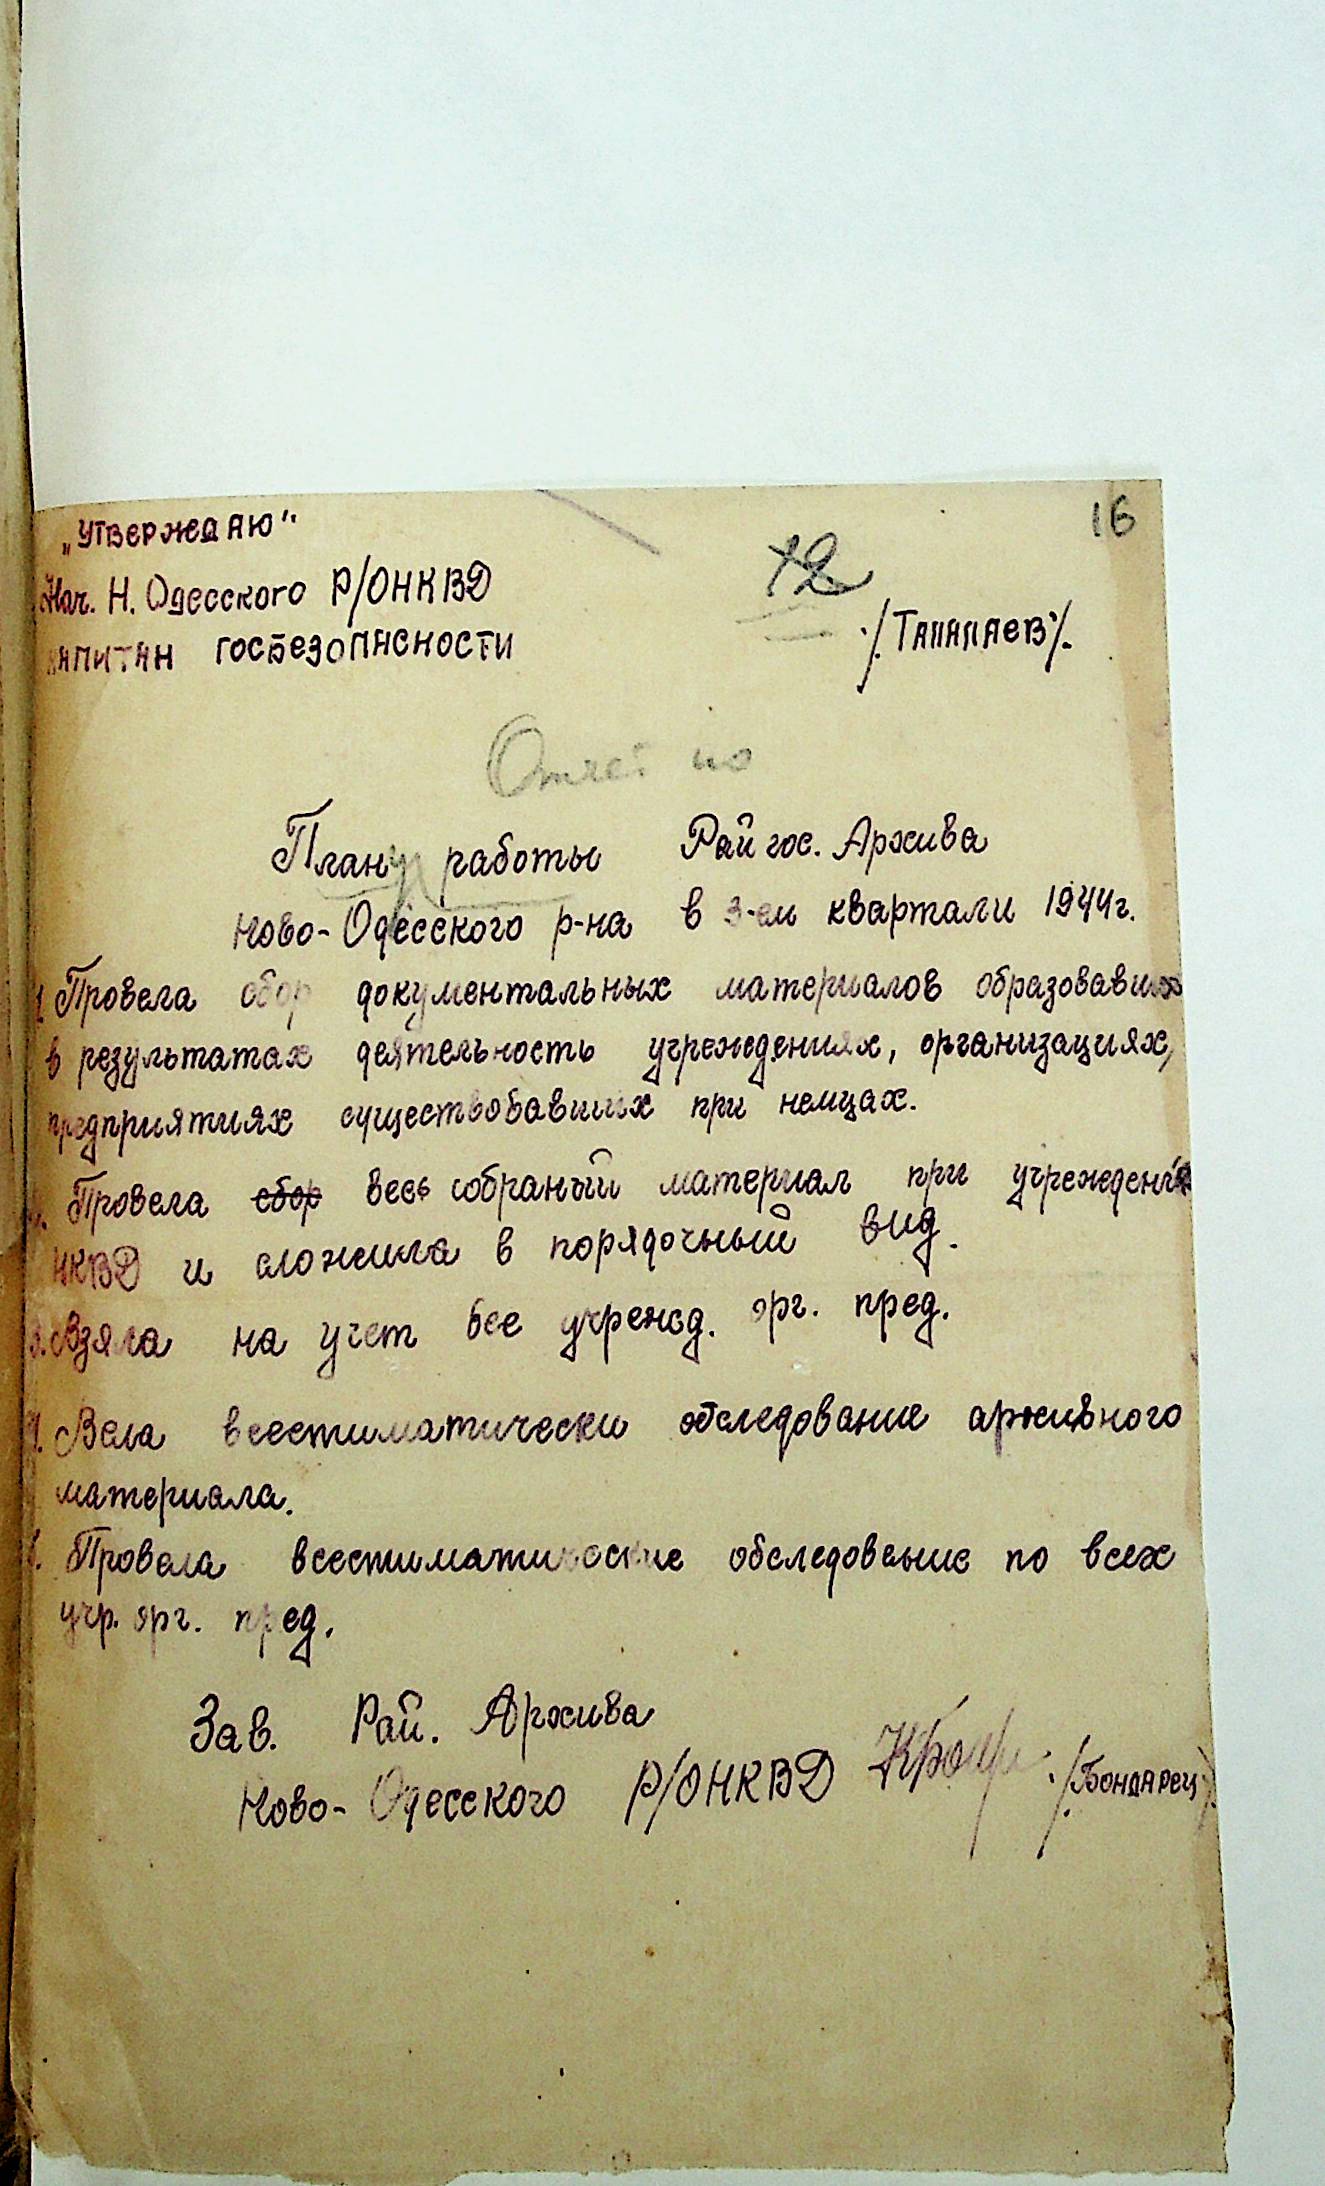 16
„Утверждаю"
12
Нач. Н. Одесского Р/ОНКВД
капитан госбезопасности ./Тапапаев/.
Отчет по
Плану работы Рай гос. Архива
Ново-Одесского р-на в 3-ем квартали 1944г.
1. Провела сбор документальных материалов образовавших
в результатах деятельность учреждениях, организациях,
предприятиях существовавших при немцах.
2. Провела сбор весь собраный материал при учреждения
НКВД и сложила в порядочный вид.
3. Взяла на учет все учрежд. орг. пред.
4. Вела всестиматически обследование архивного
материала.
5. Провела всестиматические обследование по всех
учр. орг. пред.
Зав. Рай. Архива
Ново-Одесского Р/ОНКВД ./Бондарец/.